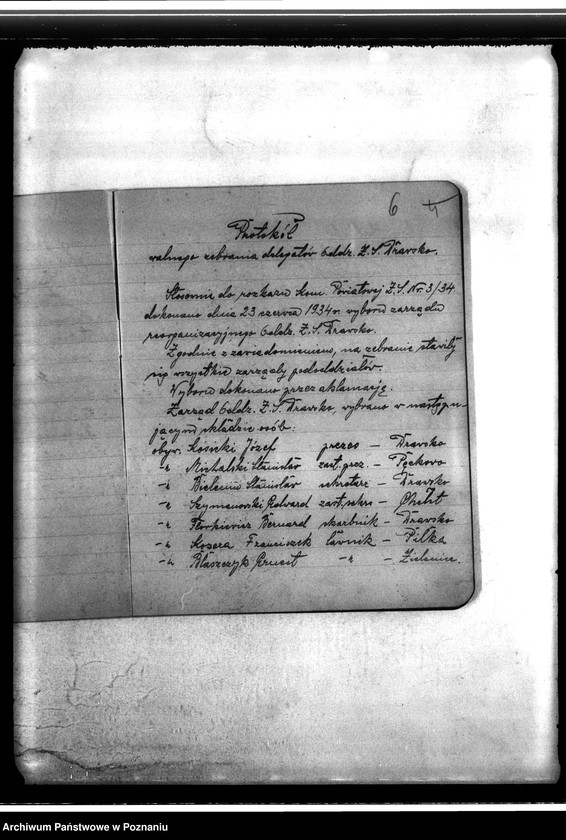 6 4
Protokół
walnego zebrania delegatów Oddz. Z.S. Drawsko.
Stosownie do rozkazu Kom. Powiatowej Z.S. Nr. 3/34
dokonano dnia 23 czerwca 1934 r. wyboru zarządu
reorganizacyjnego Oddz. Z.S. Drawsko.
Zgodnie z zawiadomieniem, na zebranie stawiły
się wszystkie zarządy pododdziałów.
Wyboru dokonano przez aklamację.
Zarząd Oddz. Z.S. Drawsko, wybrano w następu-
jącym składzie osób:
obyw. Kosicki Józef prezes – Drawsko
-"- Michalski Stanisław zast. prez. – Pęckowo
-"- Stanisław sekretarz – Drawsko
-"- Szymanowski Edward zast. sekr. – Chełst
-"- Bernard skarbnik – Drawsko
-"- Kosera Franciszek ławnik – Piłka
-"- Błaszczyk Ernest -"- – Zieleniec.
Archiwum Państwowe w Poznaniu